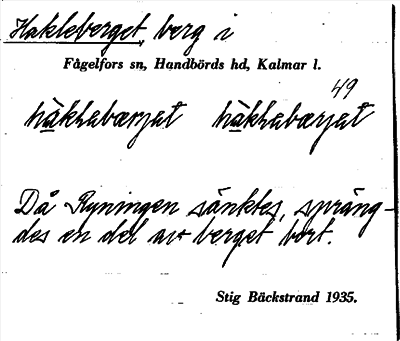 Hakleberget, berg i
Fågelfors sn, Handbörds hd, Kalmar l.
49
häkhabærjat häkhabærjat
Då Ryningen sänktes, spräng-
des en del av berget bort.
Stig Bäckstrand 1935.